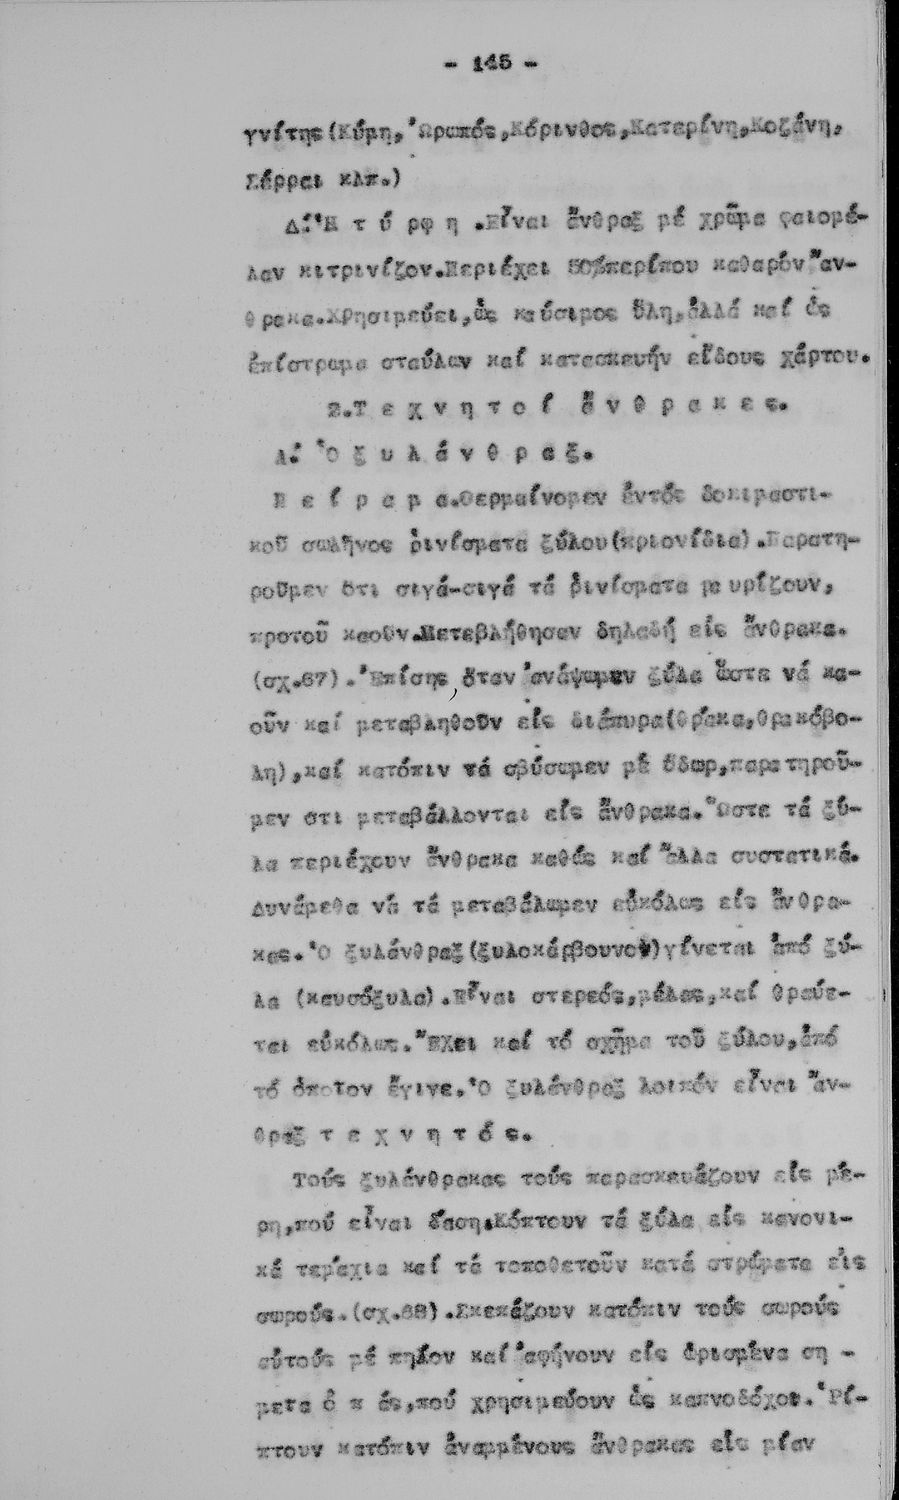 - 145 -
γνίτης(Κύμη,Ὠρωπός,Κόρινθος,Κατερίνη,Κοζάνη,
Σέρραι κλπ.)
Δ.Ἡ τ ύ ρφ η .Εἶναι ἄνθραξ μέ χρῶμα φαιομέ-
λαν κιτρινίζον.Περιέχει 50%περίπου καθαρόν ἄν-
θρακα.Χρησιμεύει,ὡς καύσιμος ὕλη,ἀλλά καί ὡς
ἐπίστρωμα σταύλων καί κατασκευήν εἴδους χάρτου.
2.Τ ε χ ν η τ ο ί ἄ ν θ ρ α κ ε ς.
Α. Ὁ ξ υ λ ά ν θ ρ α ξ.
Π ε ί ρ α μ α.Θερμαίνομεν ἐντός δοκιμαστι-
κοῦ σωλῆνος ῥινίσματα ξύλου(πριονίδια).Παρατη-
ροῦμεν ὅτι σιγά-σιγά τά ῥινίσματα μαυρίζουν,
προτοῦ καοῦν.Μετεβλήθησαν δηλαδή εἰς ἄνθρακα.
(σχ.67).Ἐπίσης,ὅταν ἀνάψωμεν ξύλα ὥστε νά κα-
οῦν καί μεταβληθοῦν εἰς διάπυρα(θράκα,θρακόβο-
λη),καί κατόπιν τά σβύσωμεν μέ ὕδωρ,παρατηροῦ-
μεν ὅτι μεταβάλλονται εἰς ἄνθρακα.Ὥστε τά ξύ-
λα περιέχουν ἄνθρακα καθώς καί ἄλλα συστατικά.
Δυνάμεθα νά τά μεταβάλωμεν εὐκόλως εἰς ἄνθρα-
κας.Ὁ ξυλάνθραξ(ξυλοκάρβουνον)γίνεται ἀπό ξύ-
λα (καυσόξυλα).Εἶναι στερεός,μέλας,καί θραύε-
ται εὐκόλως.Ἔχει καί τό σχῆμα τοῦ ξύλου,ἀπό
τό ὁποῖον ἔγινε.Ὁ ξυλάνθραξ λοιπόν εἶναι ἄν-
θραξ τ ε χ ν η τ ό ς.
Τούς ξυλάνθρακας τούς παρασκευάζουν εἰς μέ-
ρη,πού εἶναι δάση.Κόπτουν τά ξύλα εἰς κανονι-
κά τεμάχια καί τά τοποθετοῦν κατά στρώματα εἰς
σωρούς.(σχ.68).Σκεπάζουν κατόπιν τούς σωρούς
αὐτούς μέ πηλόν καί ἀφήνουν εἰς ὡρισμένα ση -
μεῖα ὀ π άς,πού χρησιμεύουν ὡς καπνοδόχοι.Ῥί-
πτουν κατόπιν ἀναμμένους ἄνθρακας εἰς μίαν